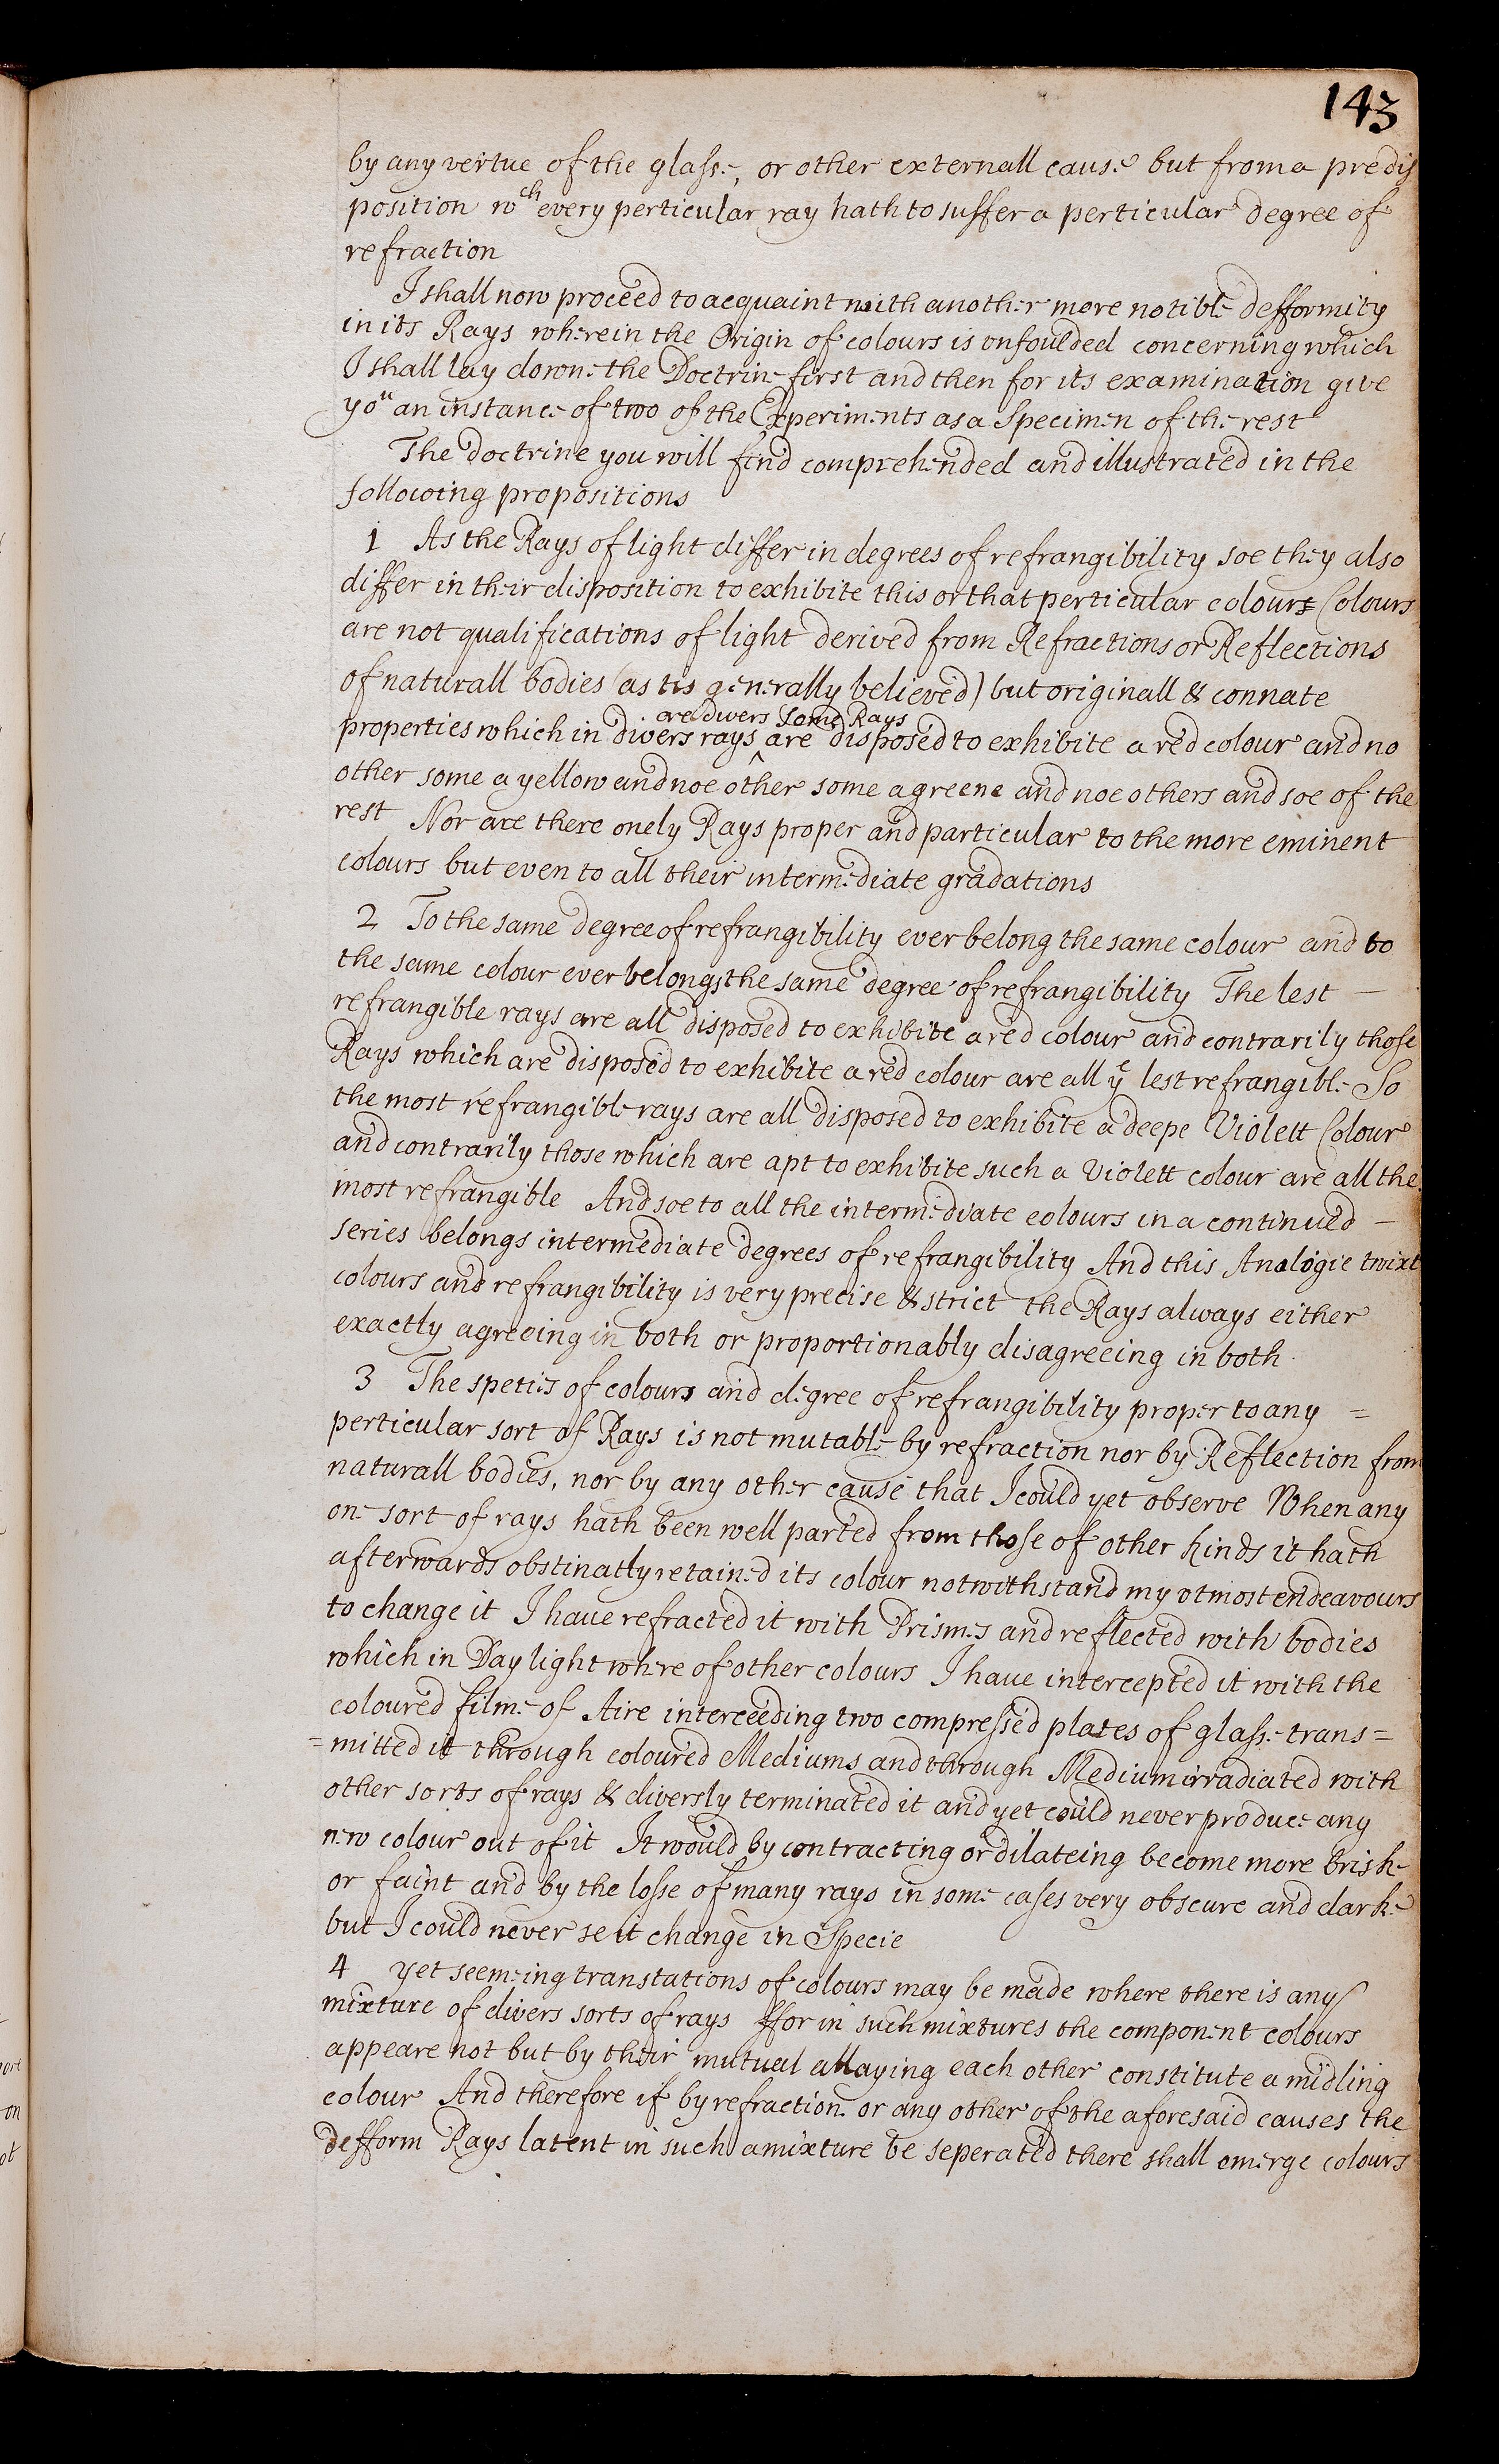 143
by any vertue of the glasse, or other externall cause but from a predis
position wch every perticular ray hath to suffer a perticular degree of
refraction
I shall now proceed to acquaint with another more notible defformity
in its Rays wherein the Origin of colours is onfoulded concerning which
I shall lay downe the Doctrine first and then for its examination give
you an instance of two of the Experiments as a Specimen of the rest
The doctrine you will find comprehended and illustrated in the
following propositions
1 As the Rays of light differ in degrees of refrangibility soe they also
differ in their disposition to exhibite this or that perticular colours Colours
are not qualifications of light derived from Refractions or Reflections
of naturall bodies (as tis generally believed) but originall & connate
are divers Some Rays
properties which in divers rays ^ are disposed to exhibite a red colour and no
other some a yellow and noe other some a greene and noe others and soe of the
rest Nor are there onely Rays proper and particular to the more eminent
colours but even to all their intermediate gradations
2 To the same degree of refrangibility ever belong the same colour and to
the same colour ever belongs the same degree of refrangibility The lest —
refrangible rays are all disposed to exhibite a red colour and contrarily those
Rays which are disposed to exhibite a red colour are all ye lest refrangible So
the most refrangible rays are all disposed to exhibite a deepe Violett Colour
and contrarily those which are apt to exhibite such a Violett colour are all the
most refrangible And soe to all the intermediate colours in a continued —
series belongs intermediate degrees of refrangibility And this Analogie twixt
colours and refrangibility is very precise & strict the Rays always either
exactly agreeing in both or proportionably disagreeing in both.
3 The speties of colours and degree of refrangibility proper to any =
perticular sort of Rays is not mutable by refraction nor by Reflection from
naturall bodies, nor by any other cause that I could yet observe When any
one sort of rays hath been well parted from those of other kinds it hath
afterwards obstinatly retained its colour notwithstand my otmost endeavours
to change it I have refracted it with Prismes and reflected with bodies
which in Day light where of other colours I have intercepted it with the
coloured filme of Aire interceeding two compressed plates of glasse trans=
=mitted it through coloured Mediums and through Medium irradiated with
other sorts of rays & diversly terminated it and yet could never produce any
new colour out of it It would by contracting or dilateing become more briske
or faint and by the losse of many rays in some cases very obscure and darke
but I could never se it change in Specie
4 yet seemeing transtations of colours may be made where there is any
mixture of divers sorts of rays ffor in such mixtures the component colours
appeare not but by their mutual allaying each other constitute a midling
colour And therefore if by refraction or any other of the aforesaid causes the
defform Rays latent in such a mixture be seperated there shall emerge colours